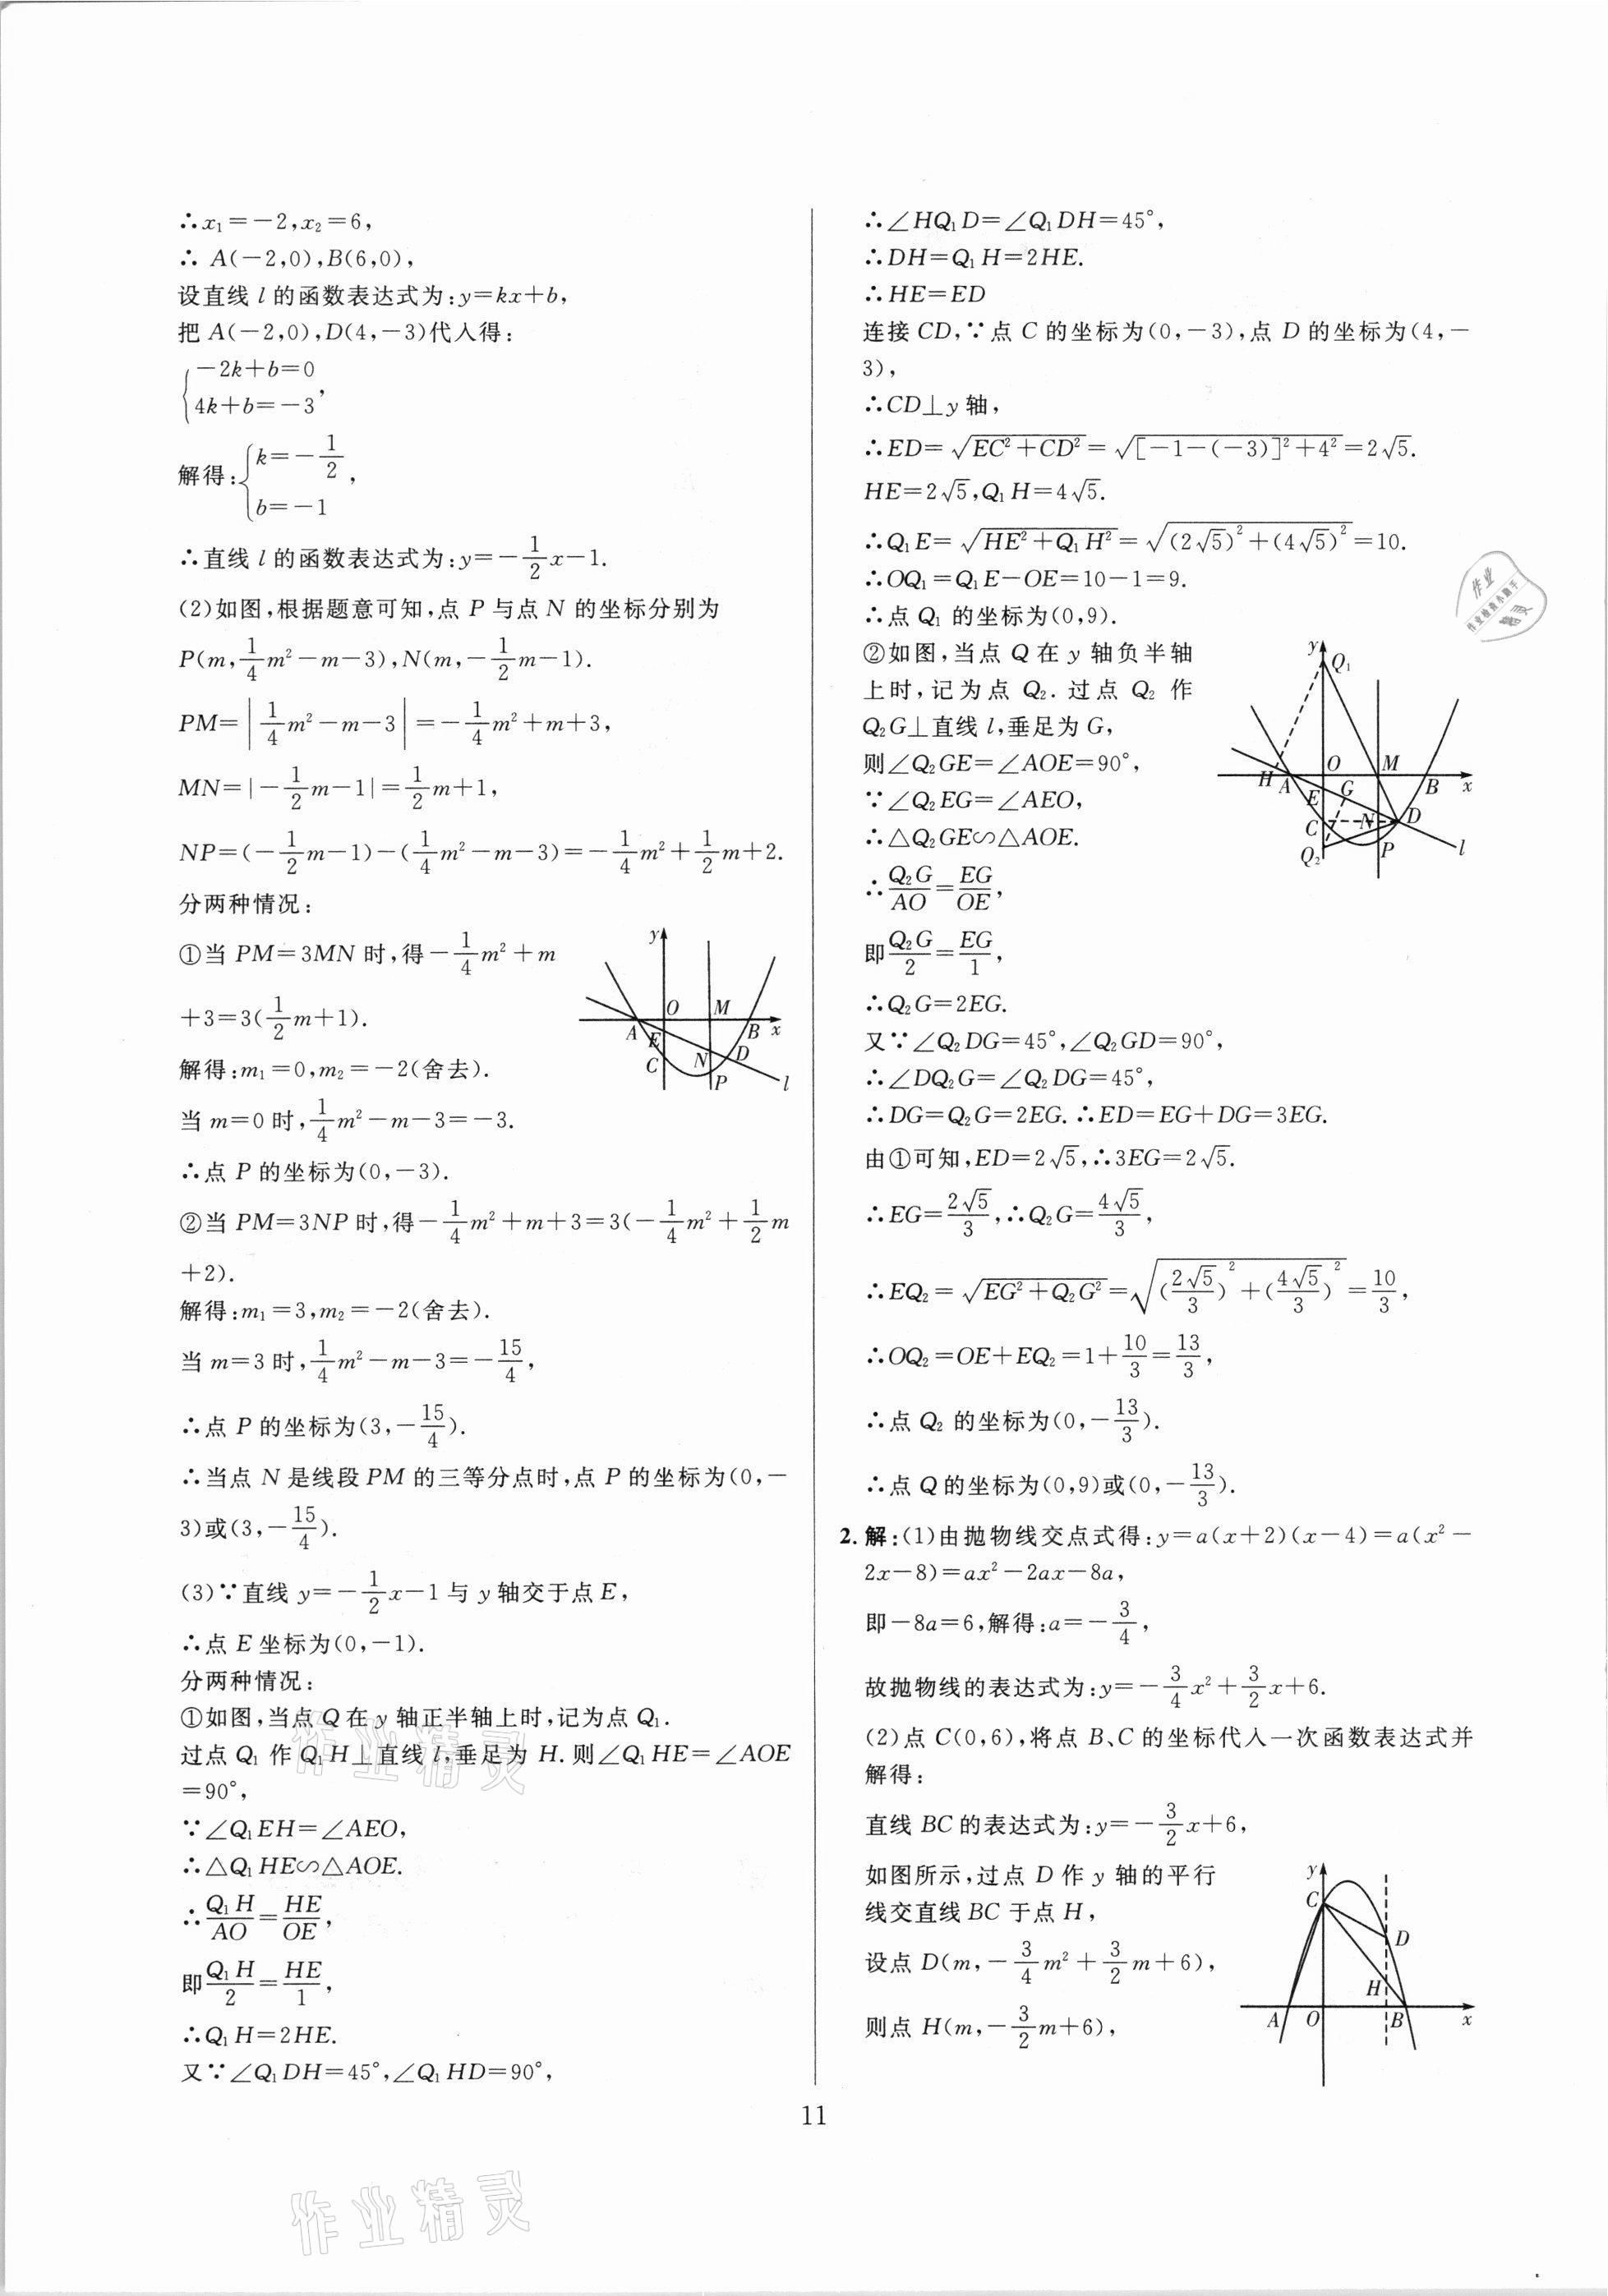 ∴x₁=-2,x₂=6,
∴ A(-2,0),B(6,0),
设直线 l 的函数表达式为:y=kx+b,
把 A(-2,0),D(4,-3)代入得:
{-2k+b=0
4k+b=-3,
解得:{k=-1/2
b=-1,
∴直线 l 的函数表达式为:y=-1/2x-1.
(2)如图,根据题意可知,点 P 与点 N 的坐标分别为
P(m,1/4m²-m-3),N(m,-1/2m-1).
PM=|1/4m²-m-3|=-1/4m²+m+3,
MN=|-1/2m-1|=1/2m+1,
NP=(-1/2m-1)-(1/4m²-m-3)=-1/4m²+1/2m+2.
分两种情况:
①当 PM=3MN 时,得-1/4m²+m
+3=3(1/2m+1).
解得:m₁=0,m₂=-2(舍去).
当 m=0 时,1/4m²-m-3=-3.
∴点 P 的坐标为(0,-3).
y
O
M
A
E
B
x
C
N
D
P
l
②当 PM=3NP 时,得-1/4m²+m+3=3(-1/4m²+1/2m
+2).
解得:m₁=3,m₂=-2(舍去).
当 m=3 时,1/4m²-m-3=-15/4,
∴点 P 的坐标为(3,-15/4).
∴当点 N 是线段 PM 的三等分点时,点 P 的坐标为(0,-
3)或(3,-15/4).
(3)∵直线 y=-1/2x-1 与 y 轴交于点 E,
∴点 E 坐标为(0,-1).
分两种情况:
①如图,当点 Q 在 y 轴正半轴上时,记为点 Q₁.
过点 Q₁ 作 Q₁H⊥直线 l,垂足为 H.则∠Q₁HE=∠AOE
=90°,
∵∠Q₁EH=∠AEO,
∴△Q₁HE∽△AOE.
∴Q₁H/AO=HE/OE,
即Q₁H/2=HE/1,
∴Q₁H=2HE.
又∵∠Q₁DH=45°,∠Q₁HD=90°,
∴∠HQ₁D=∠Q₁DH=45°,
∴DH=Q₁H=2HE.
∴HE=ED
连接 CD,∵点 C 的坐标为(0,-3),点 D 的坐标为(4,-
3),
∴CD⊥y 轴,
∴ED=√(EC²+CD²)=√([-1-(-3)]²+4²)=2√5.
HE=2√5,Q₁H=4√5.
∴Q₁E=√(HE²+Q₁H²)=√((2√5)²+(4√5)²)=10.
∴OQ₁=Q₁E-OE=10-1=9.
∴点 Q₁ 的坐标为(0,9).
②如图,当点 Q 在 y 轴负半轴
上时,记为点 Q₂.过点 Q₂ 作
Q₂G⊥直线 l,垂足为 G,
则∠Q₂GE=∠AOE=90°,
∵∠Q₂EG=∠AEO,
∴△Q₂GE∽△AOE.
∴Q₂G/AO=EG/OE,
即Q₂G/2=EG/1,
y
Q₁
O
M
H
A
E
G
B
x
C
N
D
Q₂
P
l
∴Q₂G=2EG.
又∵∠Q₂DG=45°,∠Q₂GD=90°,
∴∠DQ₂G=∠Q₂DG=45°,
∴DG=Q₂G=2EG.∴ED=EG+DG=3EG.
由①可知,ED=2√5,∴3EG=2√5.
∴EG=2√5/3,∴Q₂G=4√5/3,
∴EQ₂=√(EG²+Q₂G²)=√((2√5/3)²+(4√5/3)²)=10/3,
∴OQ₂=OE+EQ₂=1+10/3=13/3,
∴点 Q₂ 的坐标为(0,-13/3).
∴点 Q 的坐标为(0,9)或(0,-13/3).
2.解:(1)由抛物线交点式得:y=a(x+2)(x-4)=a(x²-
2x-8)=ax²-2ax-8a,
即-8a=6,解得:a=-3/4,
故抛物线的表达式为:y=-3/4x²+3/2x+6.
(2)点 C(0,6),将点 B、C 的坐标代入一次函数表达式并
解得:
直线 BC 的表达式为:y=-3/2x+6,
如图所示,过点 D 作 y 轴的平行
线交直线 BC 于点 H,
设点 D(m,-3/4m²+3/2m+6),
则点 H(m,-3/2m+6),
y
C
D
H
A
O
B
x
11
作业精灵
作业精灵
作业
作业检查小助手
精灵